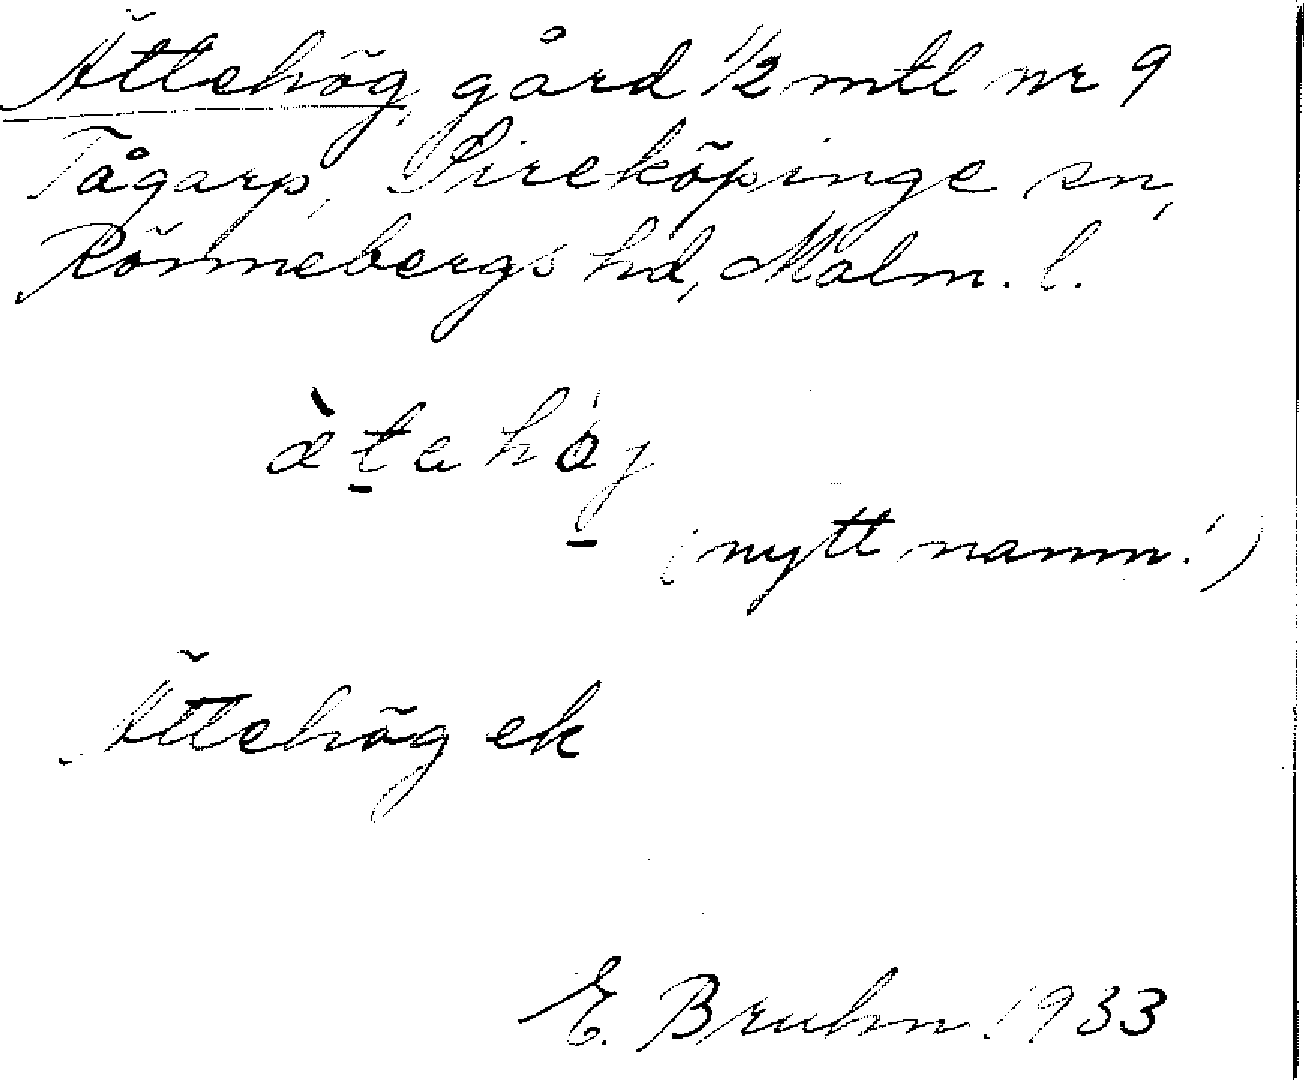 Ättehög, gård 1/2 mtl nr 9
Tågarp, Sireköpinge sn,
Rönnebergs hd, Malm. l.
(nytt namn!)
Ättehög ek
E. Bruhn 1933